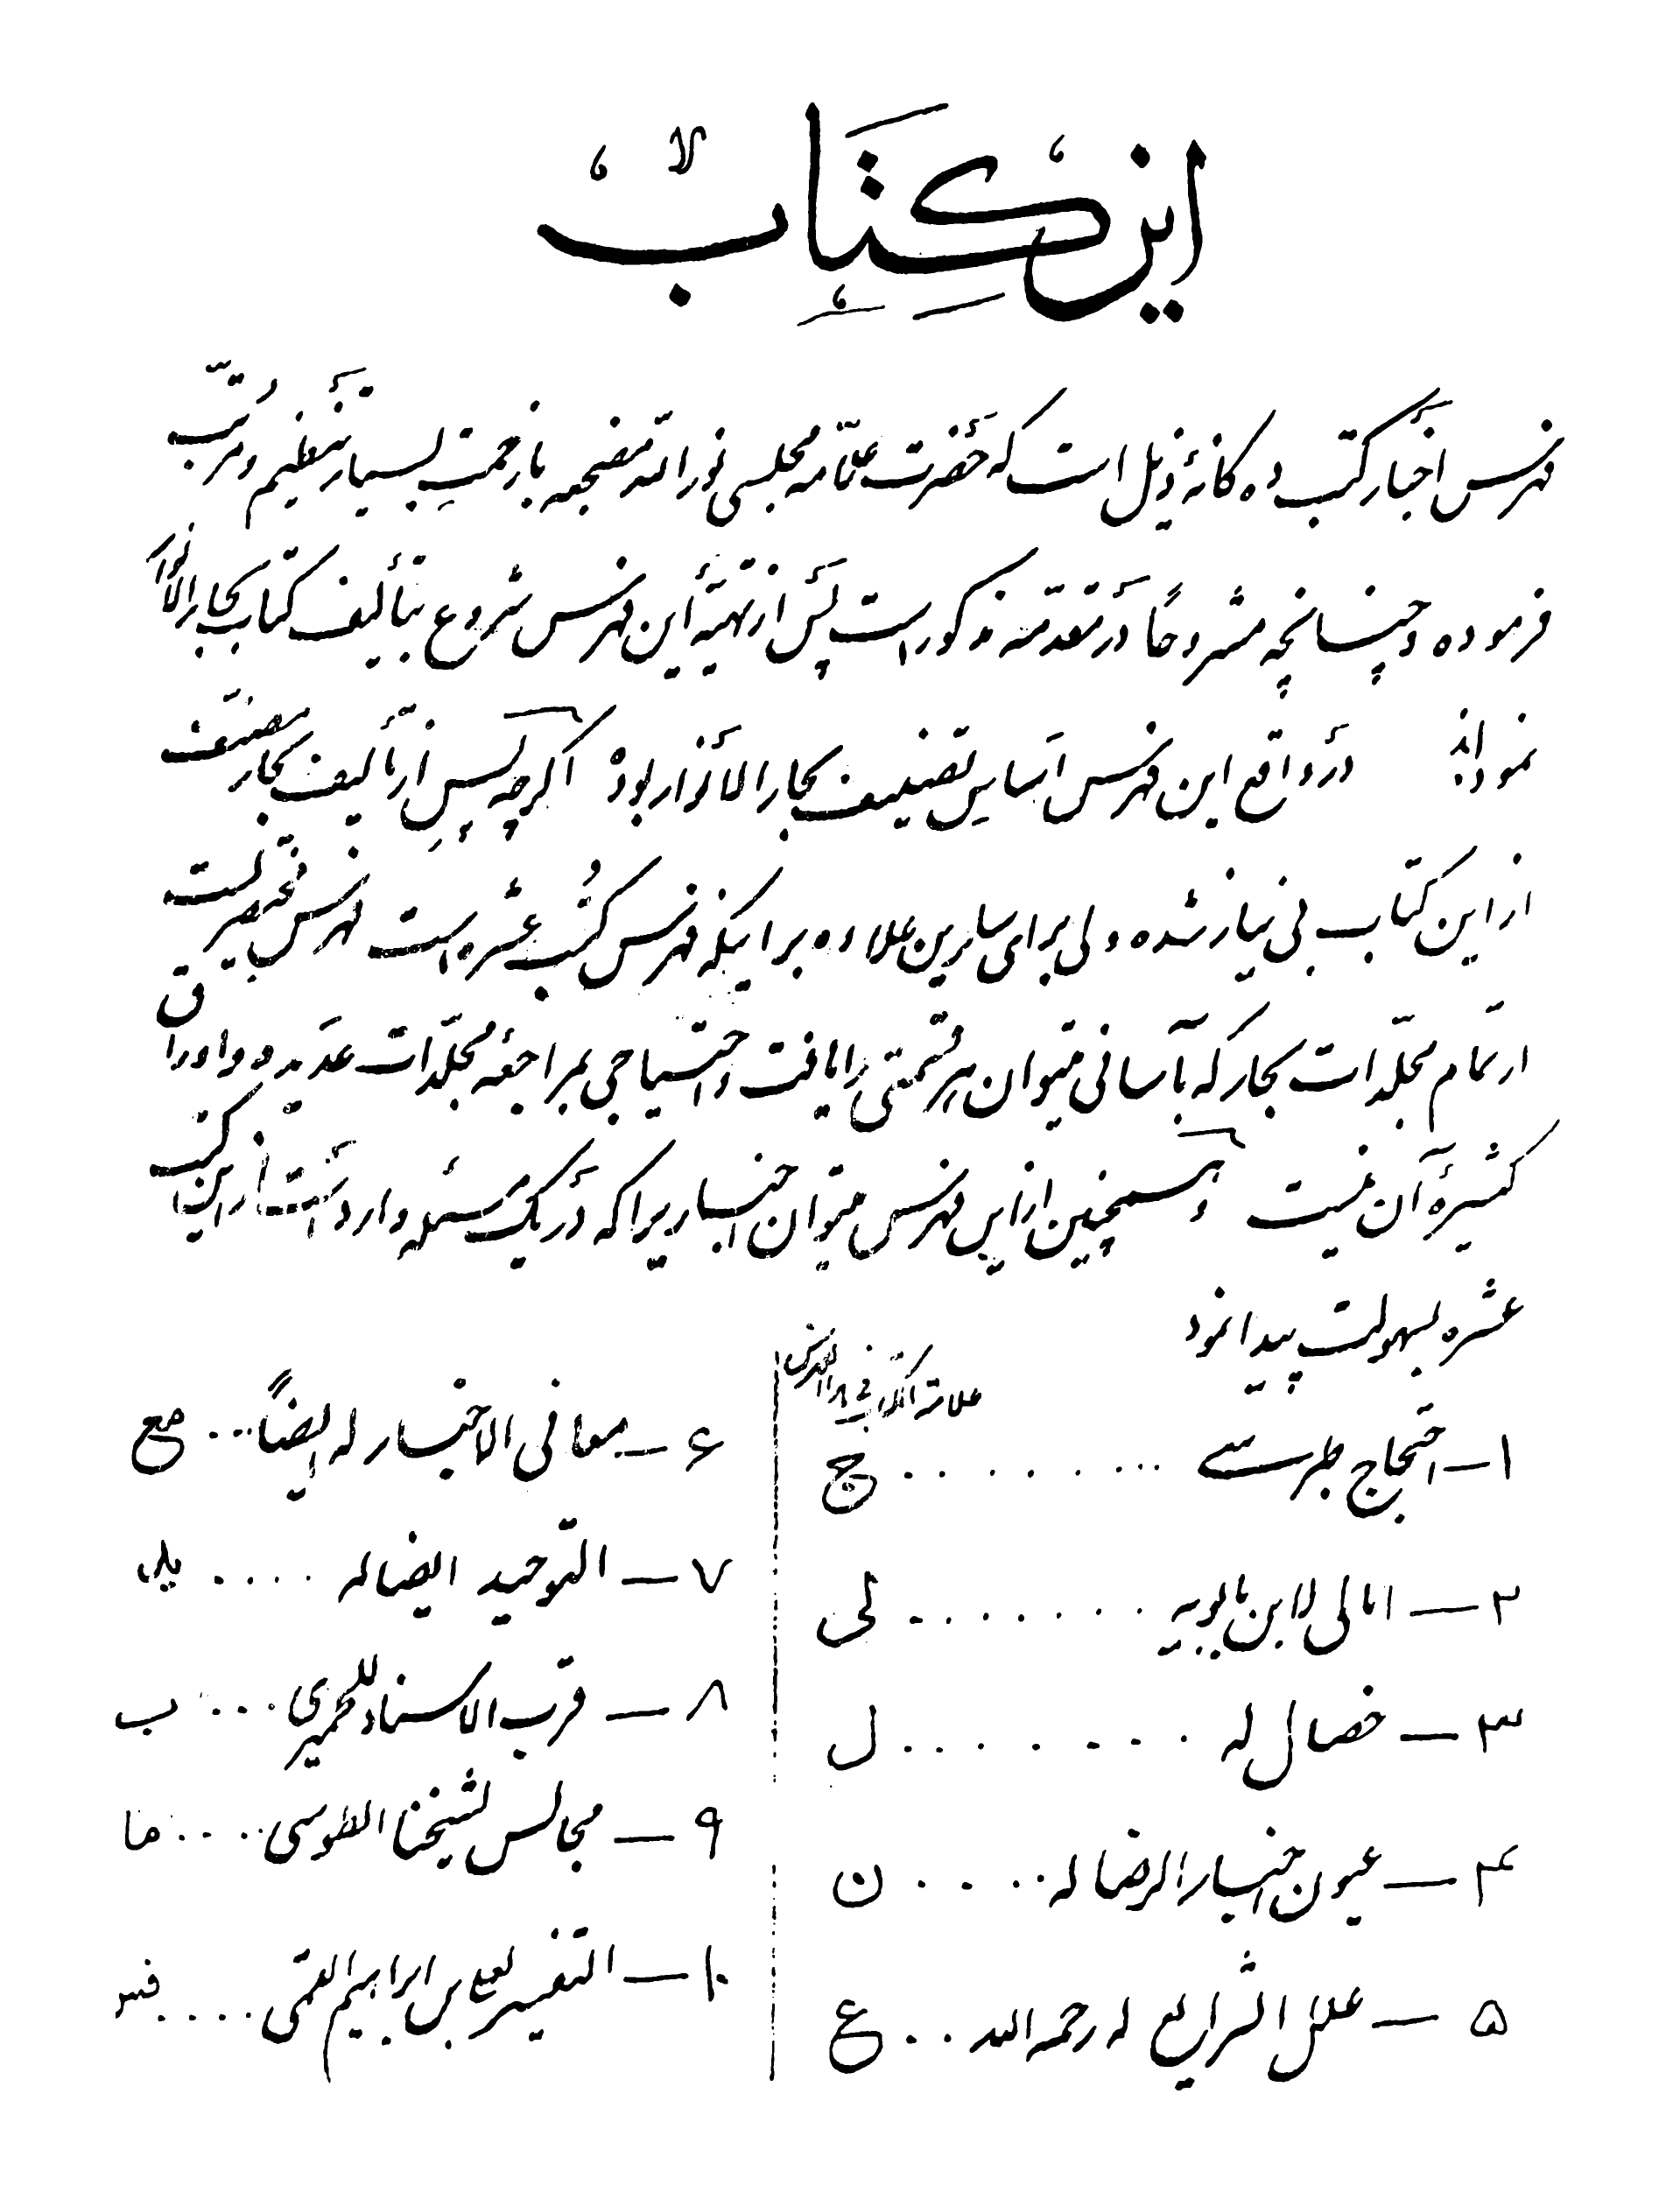 این کتاب
فهرس اخبار کتب ده کانهٔ ذیل است که حضرت علّامه مجلسی نورالله مضجعه بازحمتِ بسیار تنظیم و مرتّب
فرموده و چنانچه مشروحاً در مقدّمه مذکور است پس از تهیّهٔ این فهرس شروع بتألیف کتاب بحارالانوار
نموده‌اند در واقع این فهرس اساسِ تصنیف بحارالأنوار بوده اکرچه پسِ از تألیف بحار مصنّف
از این کتاب بی نیاز شده ولی برای سایرین علاوه بر اینکه فهرس کتُب عشره است فهرس مختصریست
از تمام مجلّدات بحار که بآسانی میتوان هر قسمتی را یافت و احتیاجی بمراجعهٔ مجلّدات عدیده و اوراق
کثیرهٔ آن نیست و همچنین از این فهرس میتوان اخباریرا که در یک مسئله وارد است از این کتب
عشره بسهولت پیدا نمود
علامة الکتاب فی هذا الفهرس
۱ــ احتجاج طبرسے ........ ج
۲ــ امالی لابن بابویه ........ لی
۳ــ خصال له ........ ل
۴ــ عیون اخبار الرضا له ..... ن
۵ــ علل الشرایع له رحمه الله .. ع
۶ــ معانی الاخبار له ایضاً ... مع
۷ــ التوحید ایضا له .... ید
۸ــ قرب الاسناد للحمیری ... ب
۹ــ مجالس لشیخنا الطوسی .... ما
۱۰ــ التفسیر لعلی بن ابراهیم القمی .... فس